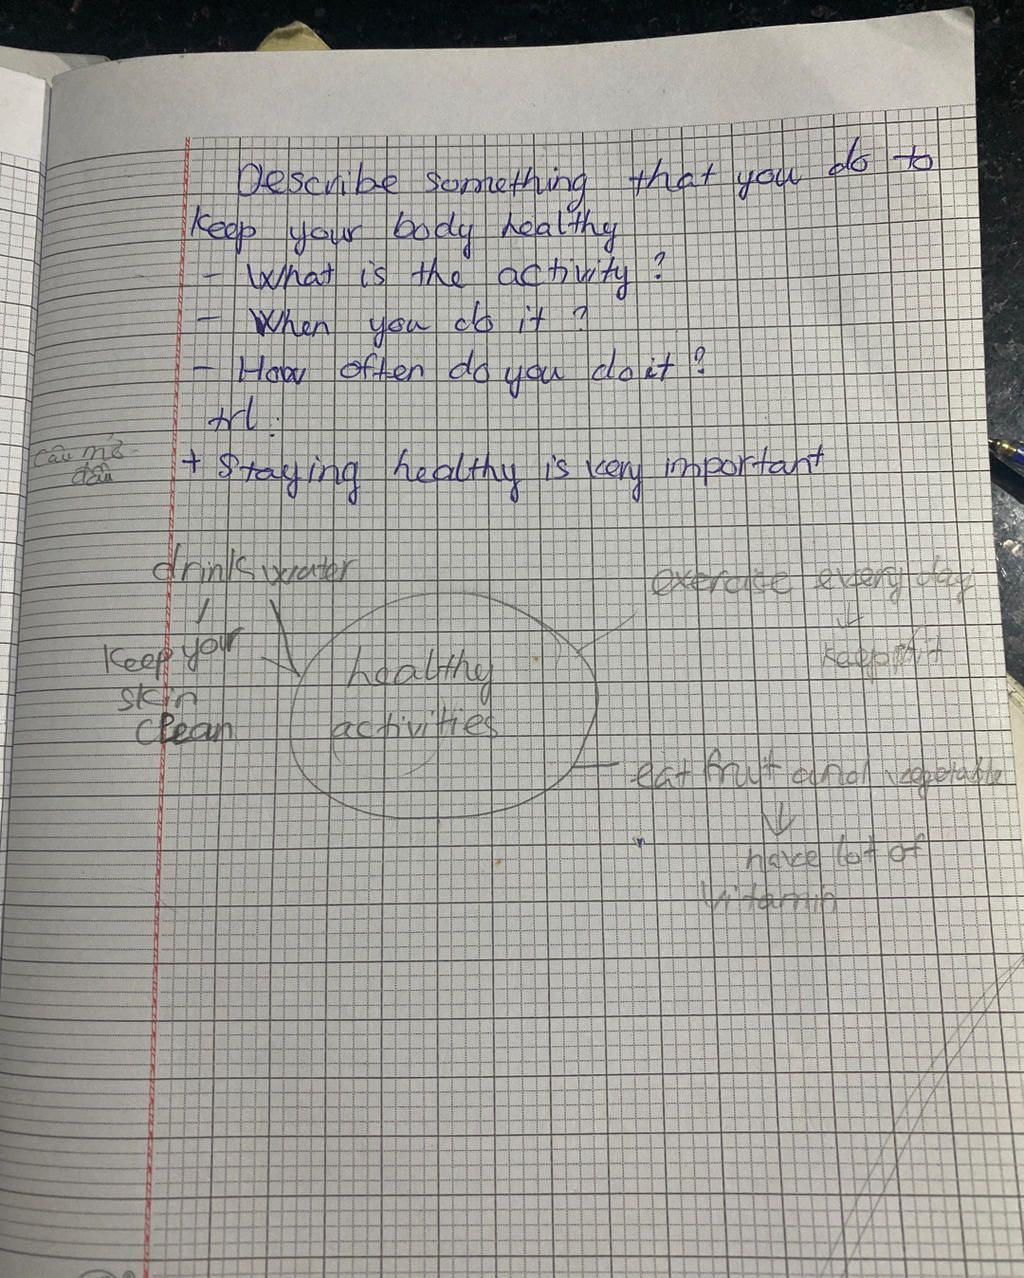 Describe something that you do to
keep your body healthy
- What is the activity ?
- When you do it ?
- How often do you do it ?
trl :
Câu mở
đầu
+ Staying healthy is very important
drink water
keep your
skin
clean
healthy
activities
exercise every day
keep fit
eat fruit and vegetable
have lot of
vitamin